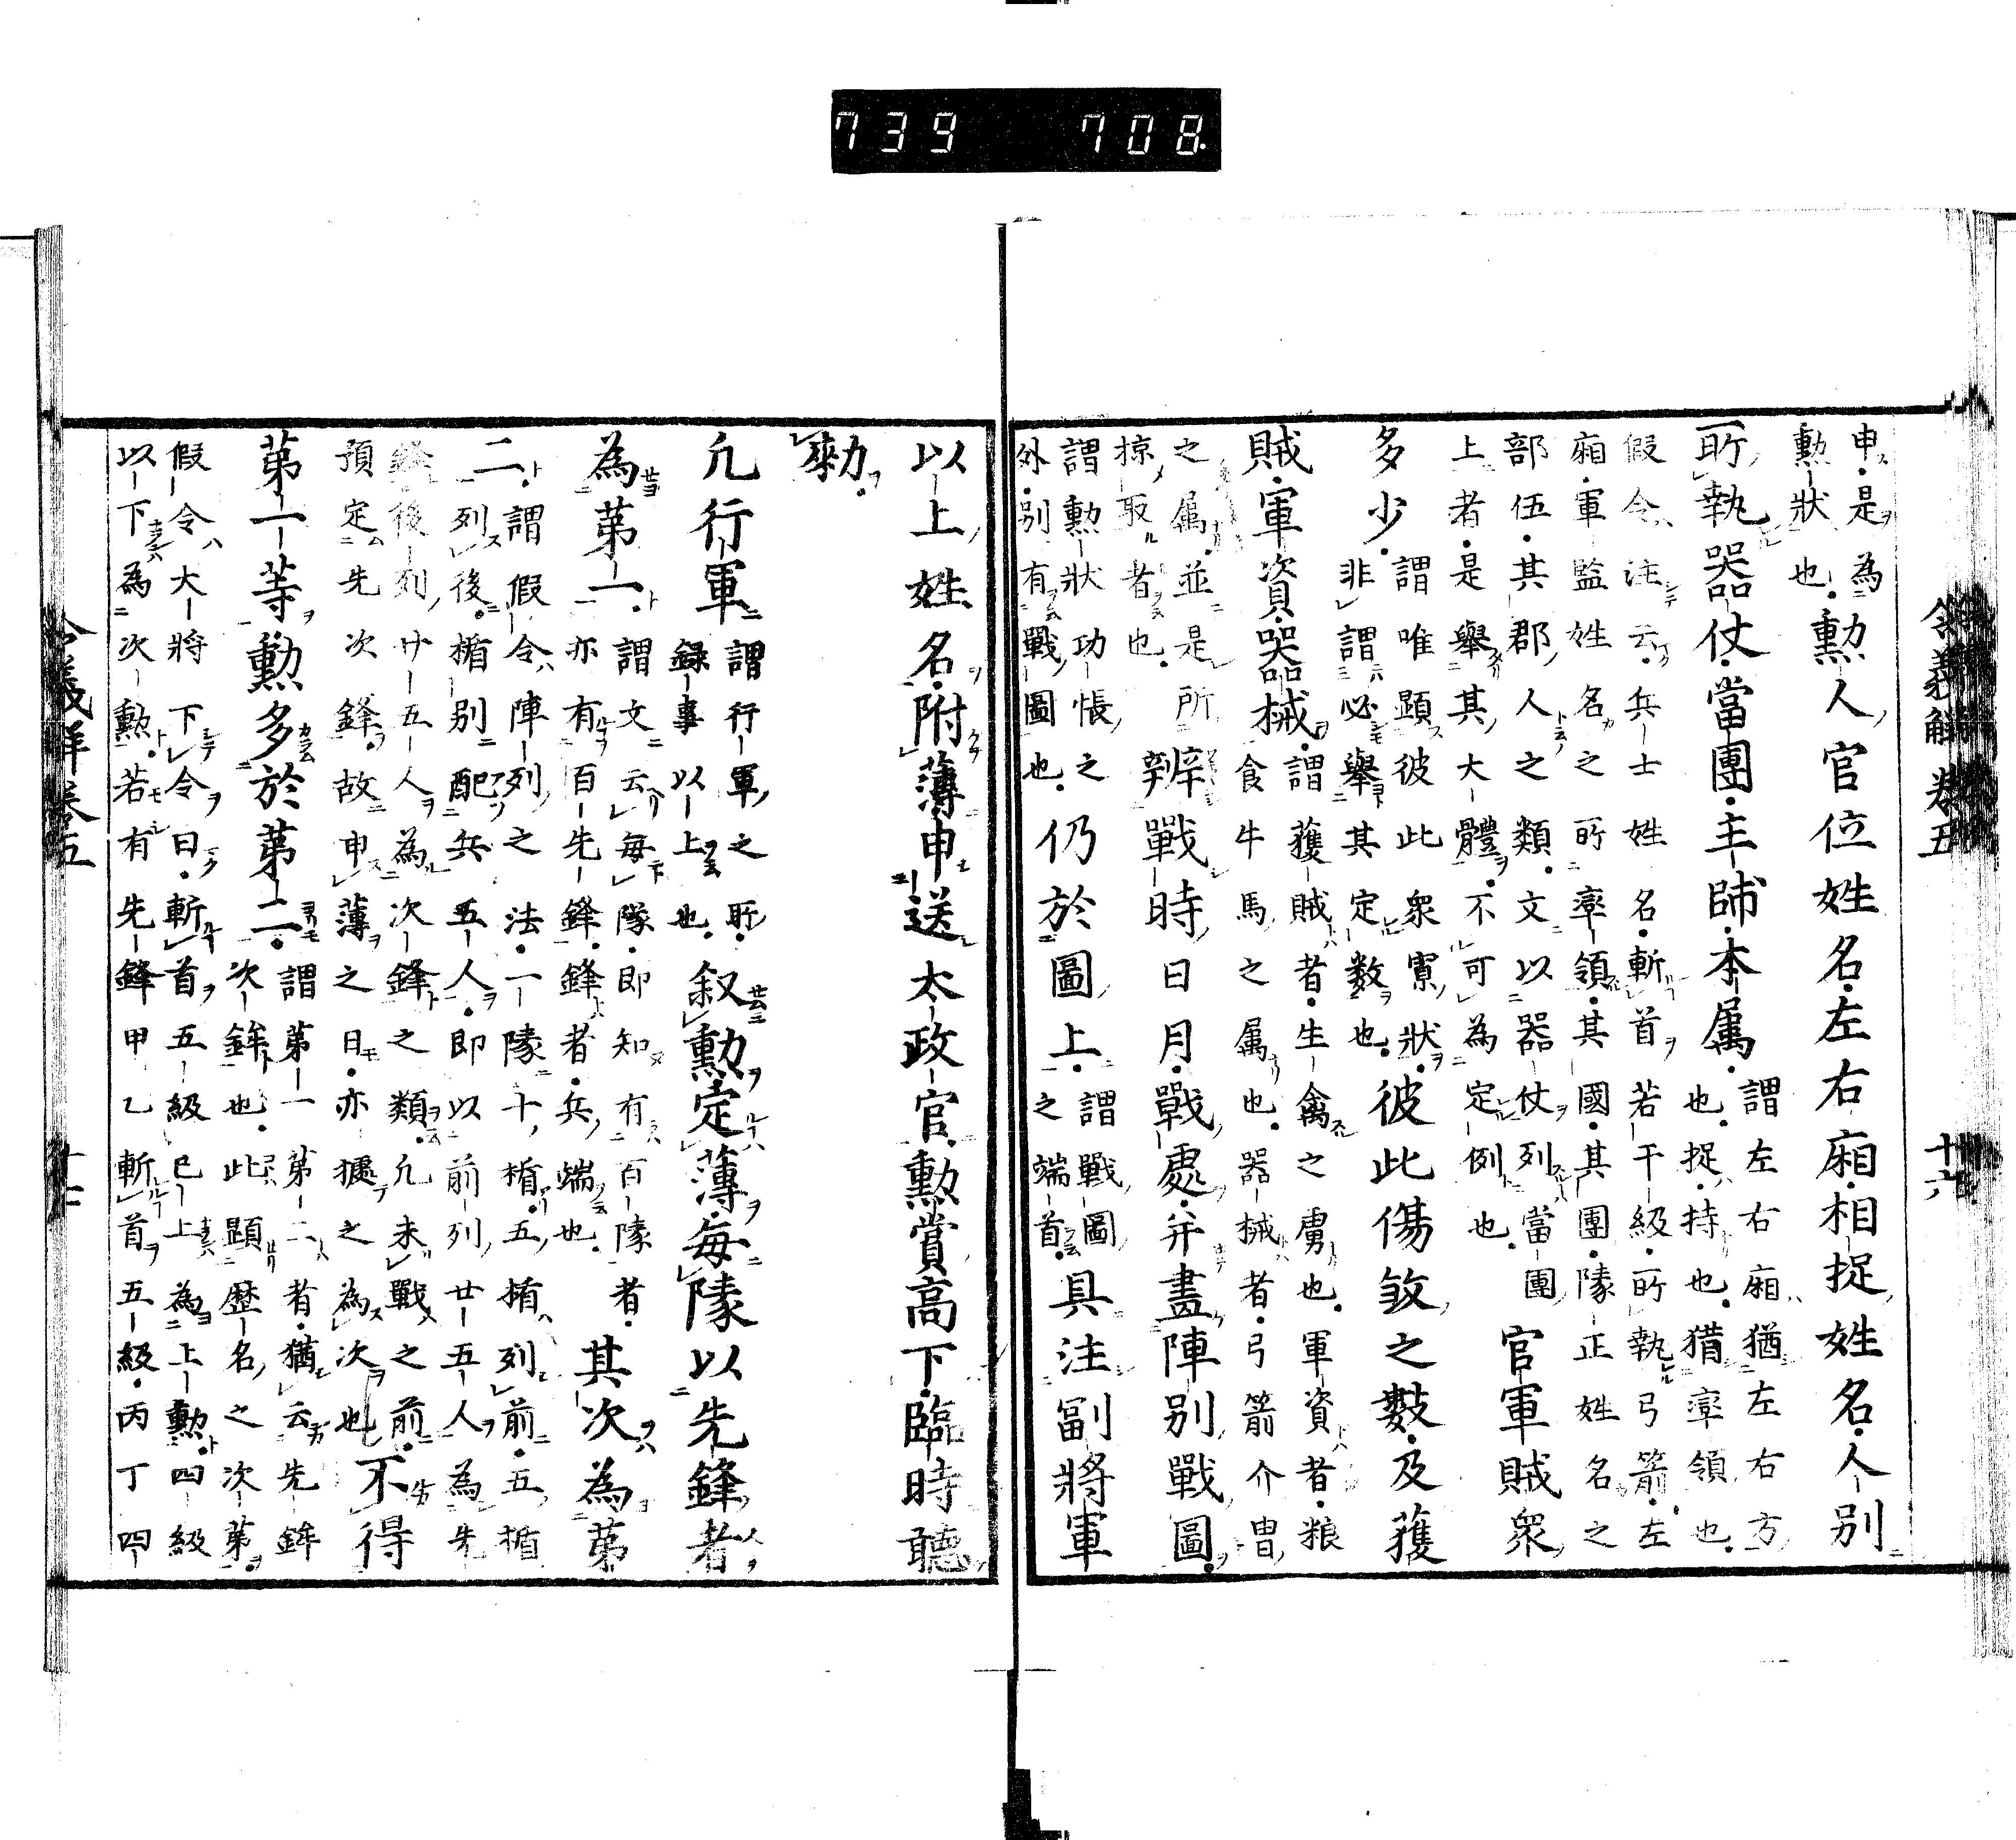 令義解 卷五 十六
申是為
勲狀也
勲人官位姓名左右廂相捉姓名人別
所執器仗當團主師本属
謂左右廂猶左右方
也捉持也猶率領也
假令注云兵士姓名斬首若干級所執弓箭左
廂軍監姓名之所率領其國其團隊正姓名之
部伍其郡人之類文以器仗列當團
上者是舉其大體不可為定例也
官軍賊衆
多少
謂唯顕彼此衆寡狀
非謂必舉其定数也
彼此傷敓之數及獲
賊軍資器械
謂獲賊者生禽之虜也軍資者粮
食牛馬之属也器械者弓箭介冑
之属並是所
掠取者也
辨戰時日月戰處并畫陣別戰圖
謂勲狀功帳之
外別有戰圖也
仍於圖上
謂戰圖
之端首
具注副將軍
以上姓名附薄申送太政官勲賞高下臨時聽
勅
凡行軍
謂行軍之所
録事以上也
叙勲定薄毎隊以先鋒者
為第一
謂文云毎隊即知有百隊者
亦有百先鋒鋒者兵端也
其次為第
二
謂假令陣列之法一隊十楯五楯列前五楯
列後楯別配兵五人即以前列廿五人為先
鋒後列廿五人為次鋒之類凡未戰之前
預定先次鋒故申薄之日亦據之為次也
不得
第一等勲多於第二
謂第一第二者猶云先鉾
次鉾也此顕歴名之次第
假令大將下令曰斬首五級已上為上勲四級
以下為次勲若有先鋒甲乙斬首五級丙丁四
令義解卷五
739 708